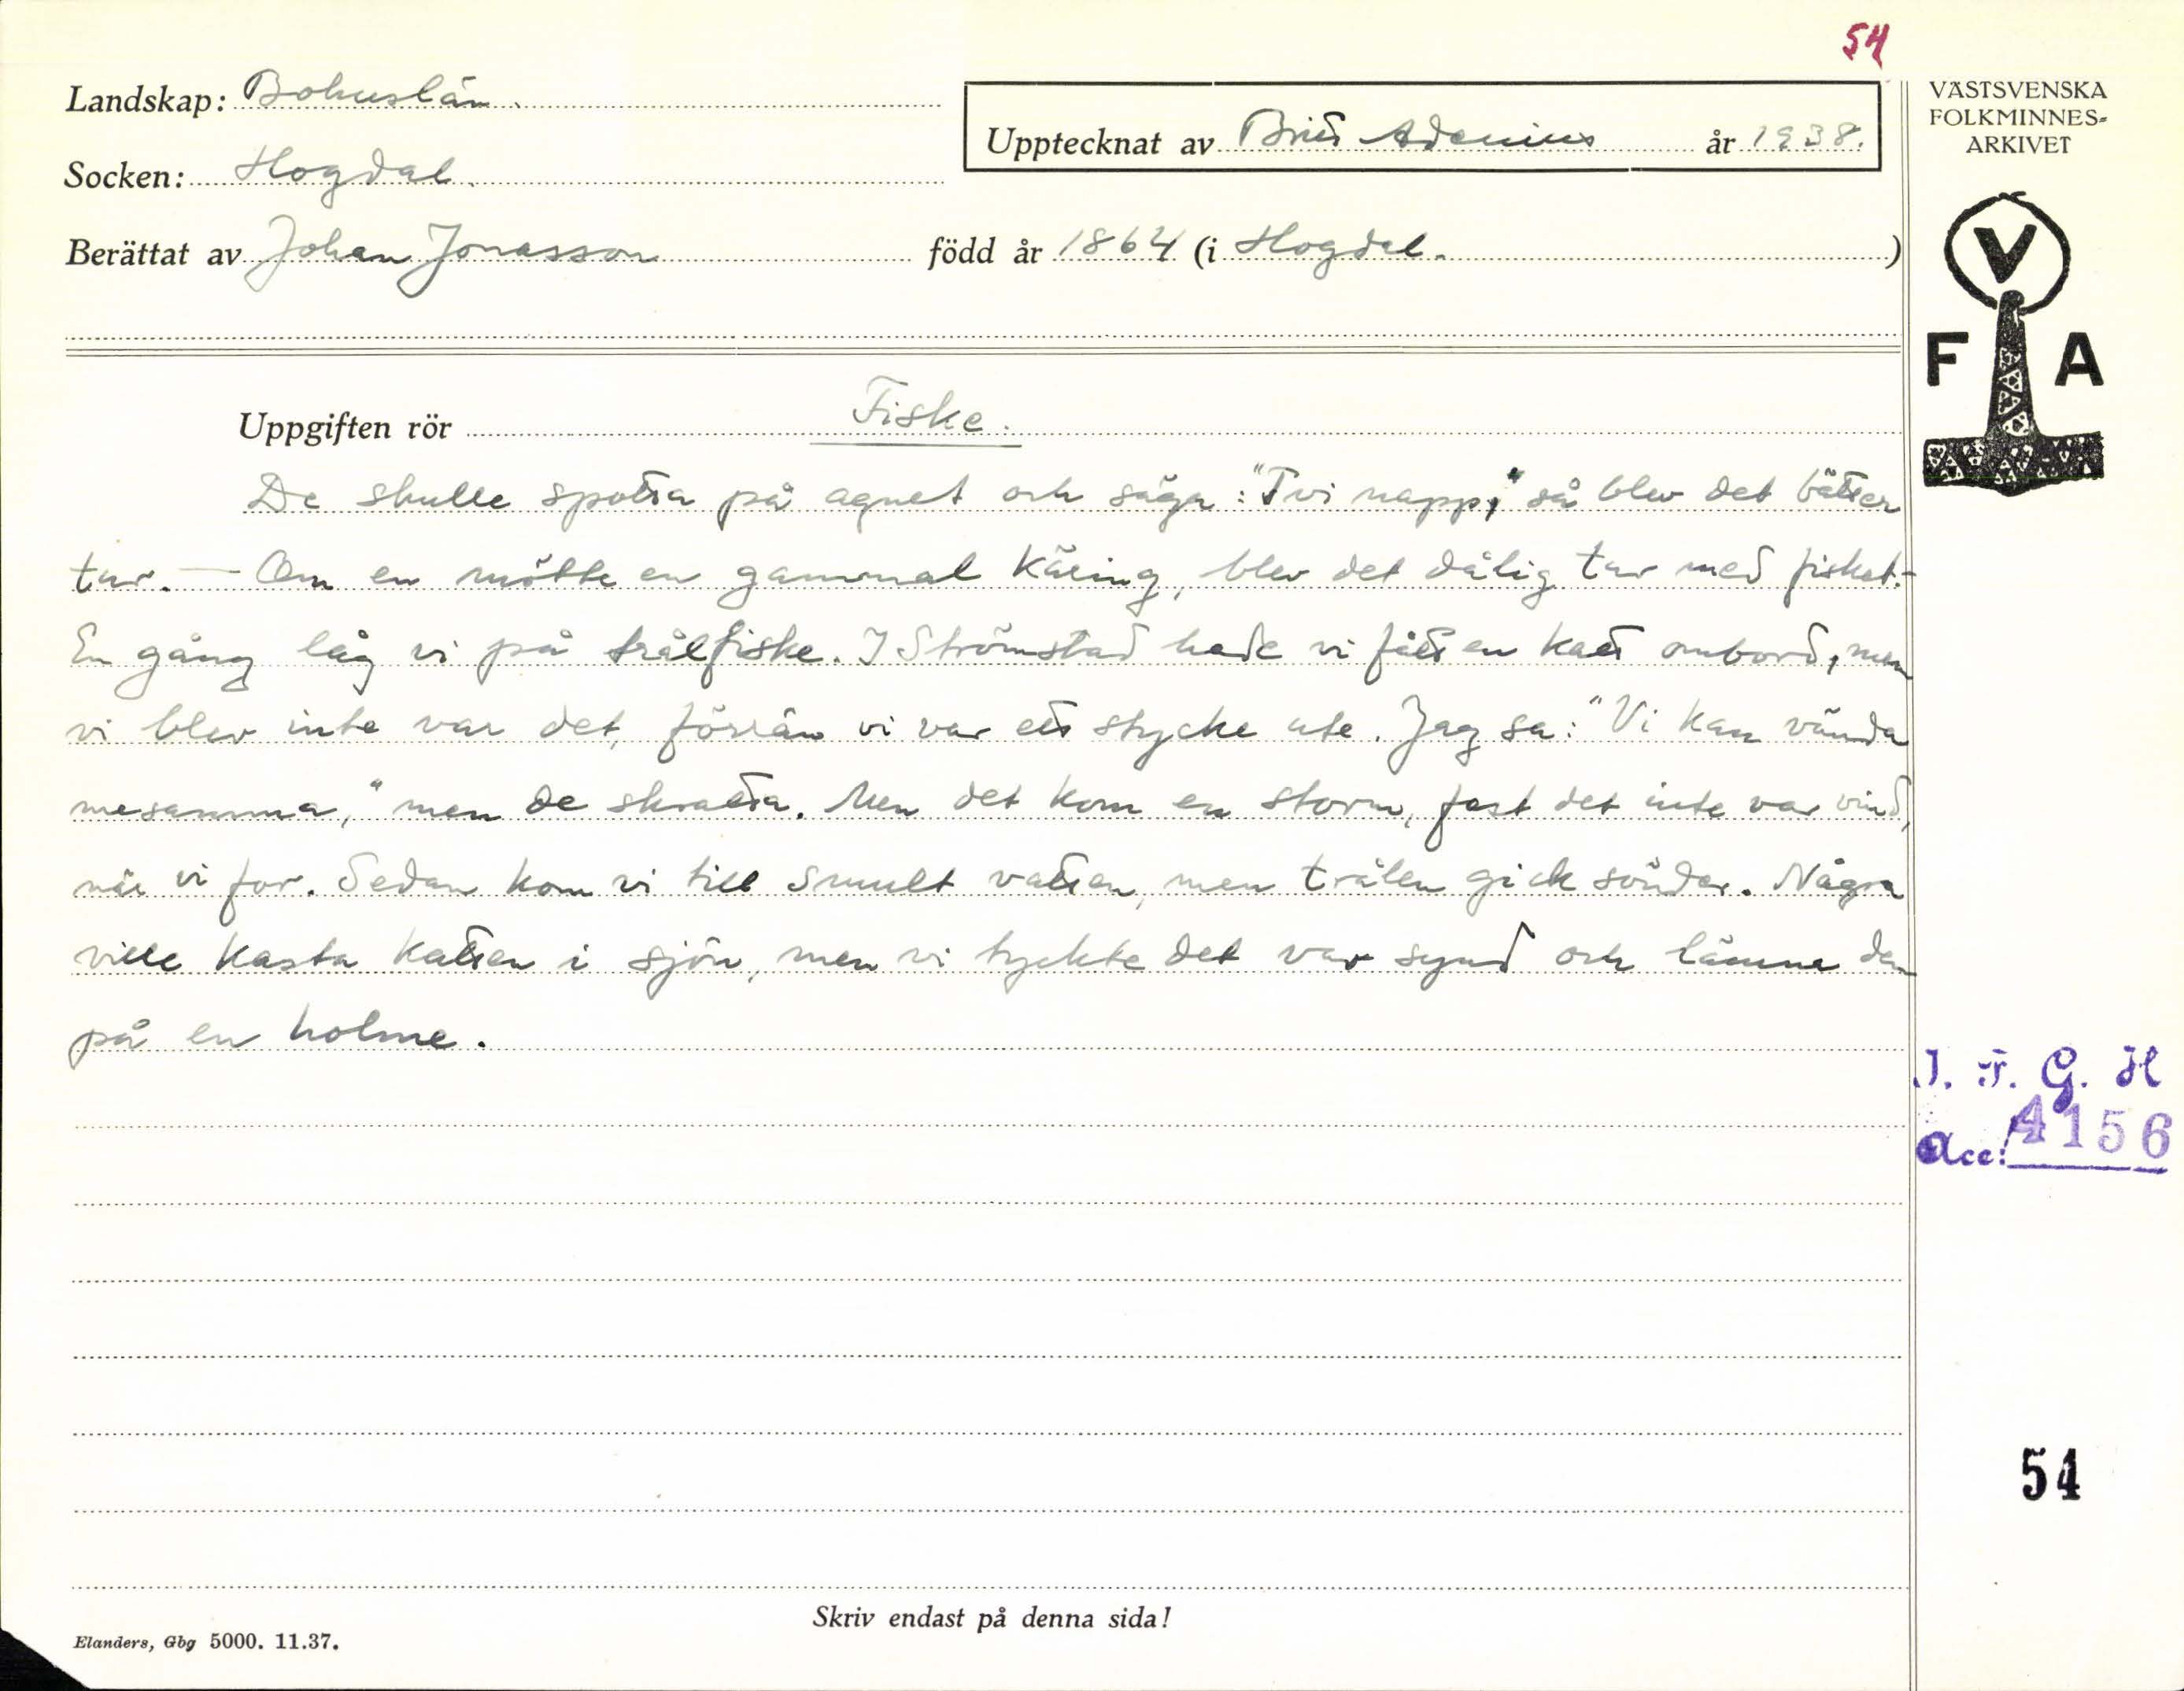 54
Landskap: Bohuslän.
Upptecknat av Britt Adenius år 1938.
Socken: Hogdal.
Berättat av Johan Jonasson född år 1864 (i Hogdal. )
VÄSTSVENSKA
FOLKMINNES-
ARKIVET
V
F A
Uppgiften rör Fiske.
De skulle spotta på agnet och säga: "Tvi napp," så blev det bätter
tur. — Om en mötte en gammal käring, blev det dålig tur med fisket. -
En gång låg vi på trålfiske. I Strömstad hade vi fått en katt ombord, men
vi blev inte var det, förrän vi var ett stycke ute. Jag sa: "Vi kan vända
mesamma," men de skratta. Men det kom en storm, fast det inte var vind,
när vi for. Sedan kom vi till smult vatten, men trålen gick sönder. Några
ville kasta katten i sjön, men vi tyckte det var synd och lämna den
på en holme.
I. F. G. H
Acc: 4156
54
Skriv endast på denna sida!
Elanders, Gbg 5000. 11.37.